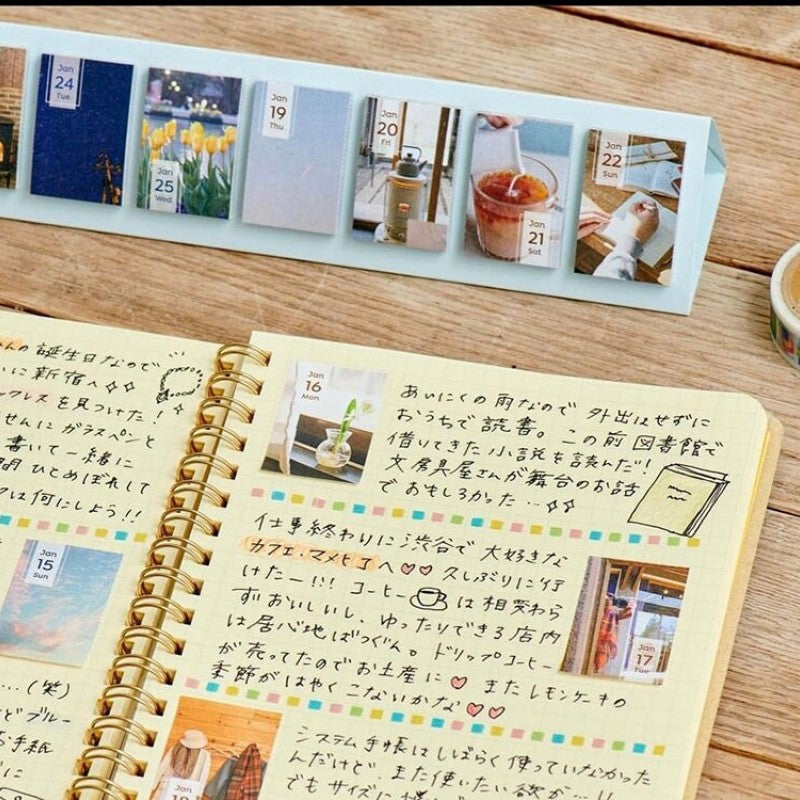 Jan
24
Tue
Jan
25
Wed
Jan
19
Thu
Jan
20
Fri
Jan
21
Sat
Jan
22
Sun
の誕生日なので
に新宿へ
ックレスを見つけた！
せんにガラスペンと
書いて一緒に
ひとめぼれして
は何にしよう！！
Jan
15
Sun
…（笑）
どブルー
お手紙
に
Jan
16
Mon
あいにくの雨なので 外出はせずに
おうちで読書。この前図書館で
借りてきた小説を読んだ！！
文房具屋さんが舞台のお話
でおもしろかった…
仕事終わりに渋谷で大好きな
カフェ・マメヒコへ 久しぶりに行
けたー！！！ コーヒーは相変わら
ずおいしいし、ゆったりできる店内
は居心地ばつぐん。ドリップコーヒー
が売ってたのでお土産に またレモンケーキの
季節がはやくこないかな
Jan
17
Tue
Jan
18
システム手帳はしばらく使っていなかった
んだけど、また使いたい欲が…！！
でもサイズに